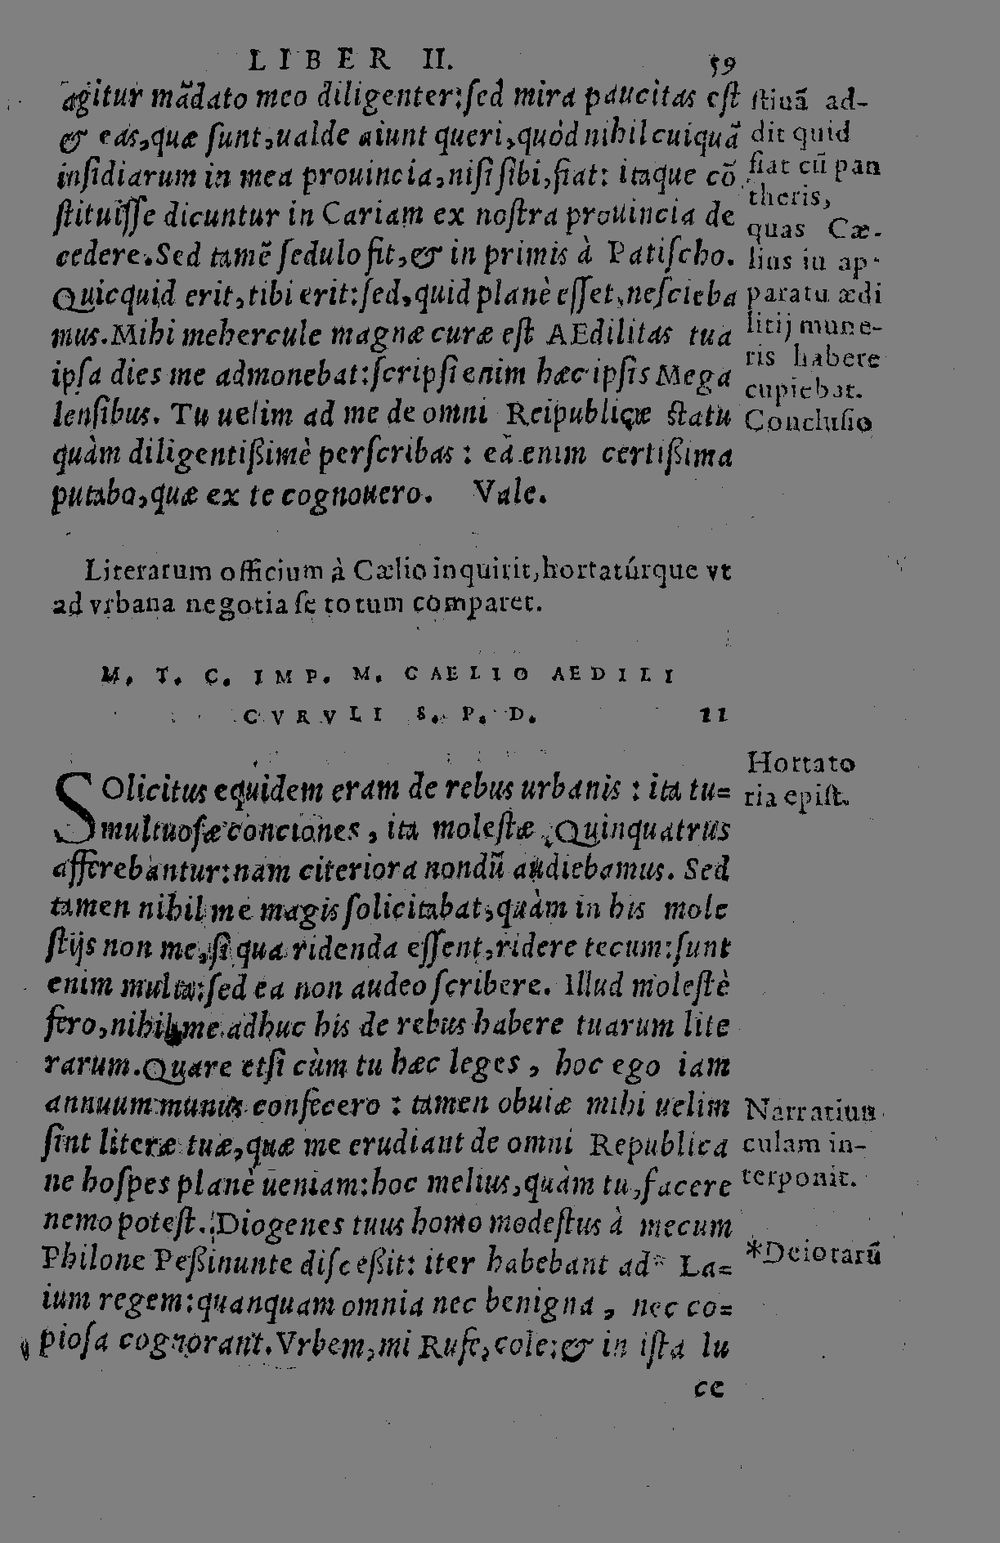 LIBER II. 59
agitur mãdato meo diligenter:ſed mira paucitas eſt
& eas,quæ ſunt,ualde aiunt queri,quòd nihil cuiquã
inſidiarum in mea prouincia,niſi ſibi,fiat: itaque cõ
ſtituiſſe dicuntur in Cariam ex noſtra prouincia de
cedere.Sed tamẽ ſedulo fit,& in primis à Patiſcho.
Quicquid erit,tibi erit:ſed,quid planè eſſet,neſcieba
mus.Mihi mehercule magnæ curæ eſt AEdilitas tua
ipſa dies me admonebat:ſcripſi enim hæc ipſis Mega
lenſibus. Tu uelim ad me de omni Reipublicæ ſtatu
quàm diligentißimè perſcribas : ea enim certißima
putabo,quæ ex te cognouero. Vale.
ſtiuã ad-
dit quid
fiat cũ pan
theris,
quas Cæ-
lius in ap-
paratu ædi
litij mune-
ris habere
cupiebat.
Concluſio
Literarum officium à Cælio inquirit,hortatúrque vt
ad vrbana negotia ſe totum comparet.
M. T. C. IMP. M. CAELIO AEDILI
CVRVLI S. P. D. 11
SOlicitus equidem eram de rebus urbanis : ita tu=
multuoſæ conciones, ita moleſtæ Quinquatrus
afferebantur:nam citeriora nondũ audiebamus. Sed
tamen nihil me magis ſolicitabat,quàm in his mole
ſtijs non me,ſi qua ridenda eſſent,ridere tecum:ſunt
enim multa:ſed ea non audeo ſcribere. Illud moleſtè
fero,nihil me adhuc his de rebus habere tuarum lite
rarum.Quare etſi cùm tu hæc leges, hoc ego iam
annuum munus confecero : tamen obuiæ mihi uelim
ſint literæ tuæ,quæ me erudiant de omni Republica
ne hoſpes planè ueniam:hoc melius,quàm tu,facere
nemo poteſt. Diogenes tuus homo modeſtus à mecum
Philone Peßinunte diſceßit: iter habebant ad* La=
ium regem:quanquam omnia nec benigna, nec co=
pioſa cognorant.Vrbem,mi Rufe,cole:& in iſta lu
ce
Hortato
ria epiſt.
Narratiun
culam in-
terponit.
*Deiotarũ